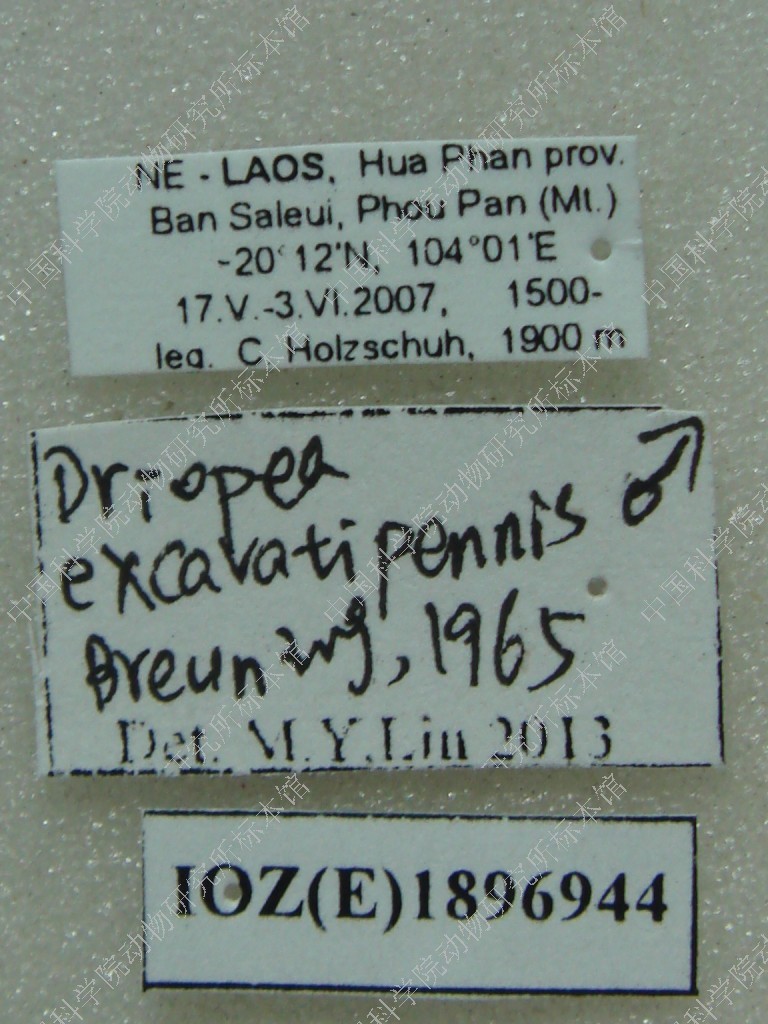 NE - LAOS, Hua Phan prov.
Ban Saleui, Phou Pan (Mt.)
~20°12'N, 104°01'E
17.V.-3.VI.2007, 1500-
leg. C. Holzschuh, 1900 m
Driopea ♂
excavatipennis
Breuning, 1965
Det. M.Y.Lin 2013
IOZ(E)1896944
中国科学院动物研究所标本馆